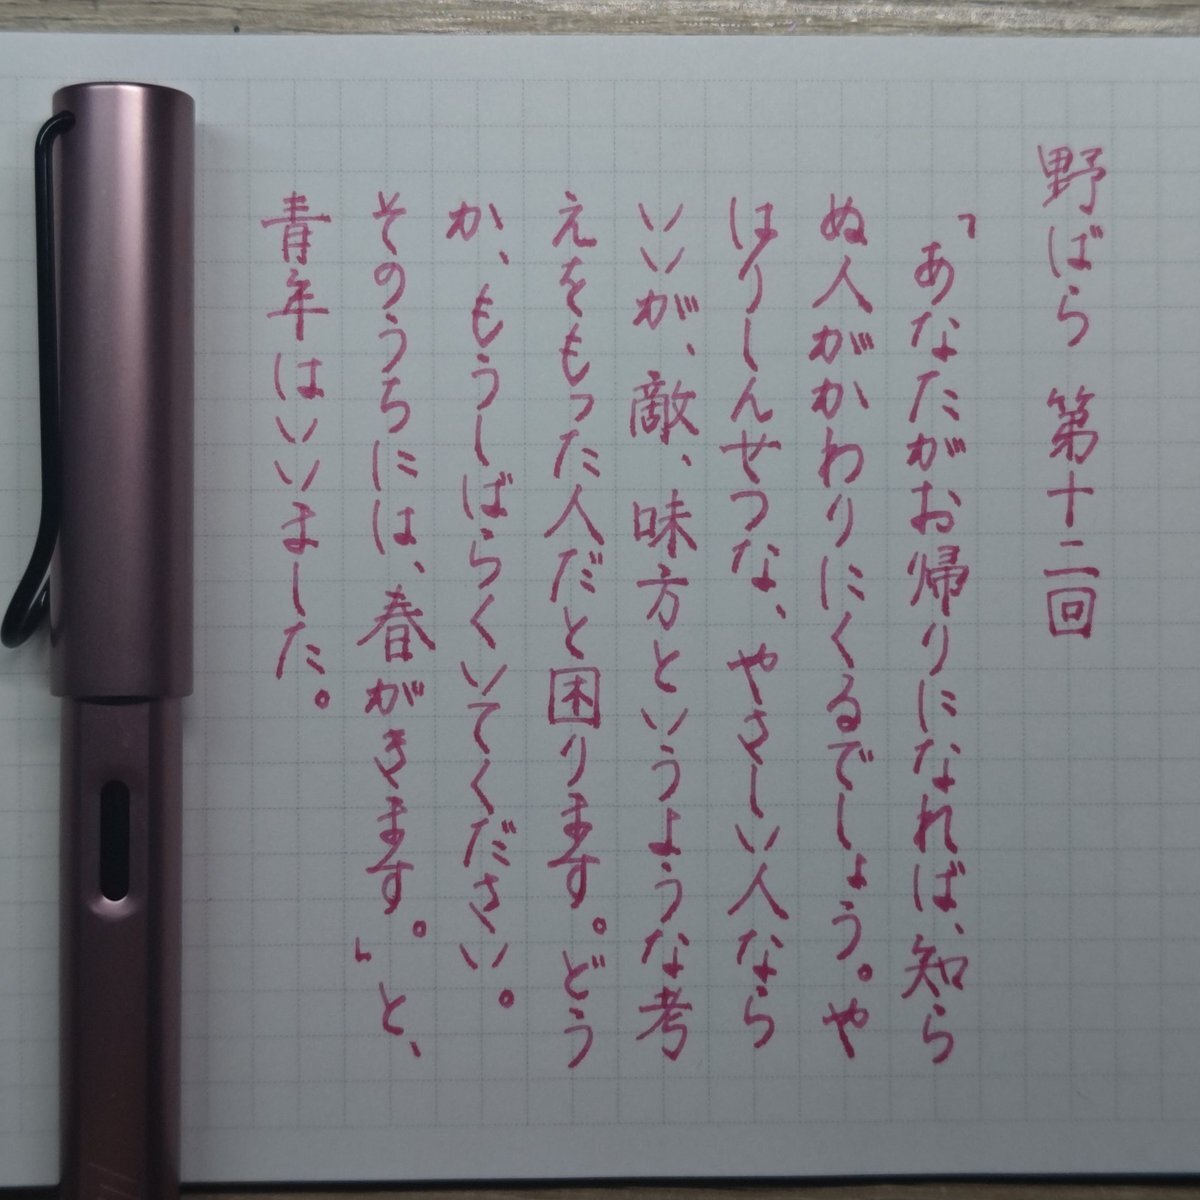 野ばら 第十二回
「あなたがお帰りになれば、知ら
ぬ人がかわりにくるでしょう。や
はりしんせつな、やさしい人なら
いいが、敵、味方というような考
えをもった人だと困ります。どう
か、もうしばらくいてください。
そのうちには、春がきます。」と、
青年はいいました。